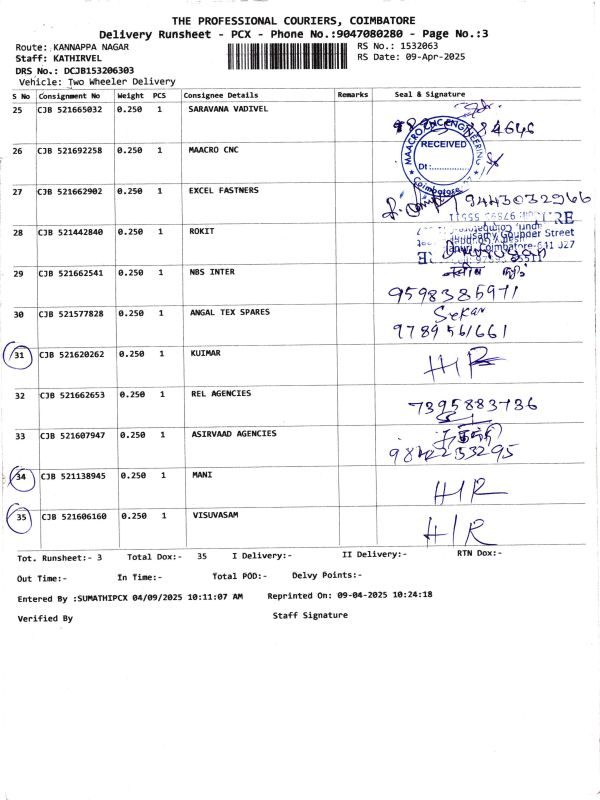 THE PROFESSIONAL COURIERS, COIMBATORE
Delivery Runsheet - PCX - Phone No.:9047080280 - Page No.:3
Route: KANNAPPA NAGAR
RS No.: 1532063
Staff: KATHIRVEL
RS Date: 09-Apr-2025
DRS No.: DCJB153206303
Vehicle: Two Wheeler Delivery
S No Consignment No Weight PCS Consignee Details Remarks Seal & Signature
25 CJB 521665032 0.250 1 SARAVANA VADIVEL
26 CJB 521692258 0.250 1 MAACRO CNC
MAACRO CNC ENGINEERING
RECEIVED
Dt:
Coimbatore
27 CJB 521662902 0.250 1 EXCEL FASTNERS 9443032966
28 CJB 521442840 0.250 1 ROKIT
Gounder Street
Coimbatore-641 027
29 CJB 521662541 0.250 1 NBS INTER
9598385971
30 CJB 521577828 0.250 1 ANGAL TEX SPARES Sekar
9789561661
31 CJB 521620262 0.250 1 KUIMAR H/R
32 CJB 521662653 0.250 1 REL AGENCIES 7395883736
33 CJB 521607947 0.250 1 ASIRVAAD AGENCIES
34 CJB 521138945 0.250 1 MANI H/R
35 CJB 521606160 0.250 1 VISUVASAM H/R
Tot. Runsheet:- 3 Total Dox:- 35 I Delivery:- II Delivery:- RTN Dox:-
Out Time:- In Time:- Total POD:- Delvy Points:-
Entered By :SUMATHIPCX 04/09/2025 10:11:07 AM Reprinted On: 09-04-2025 10:24:18
Verified By Staff Signature